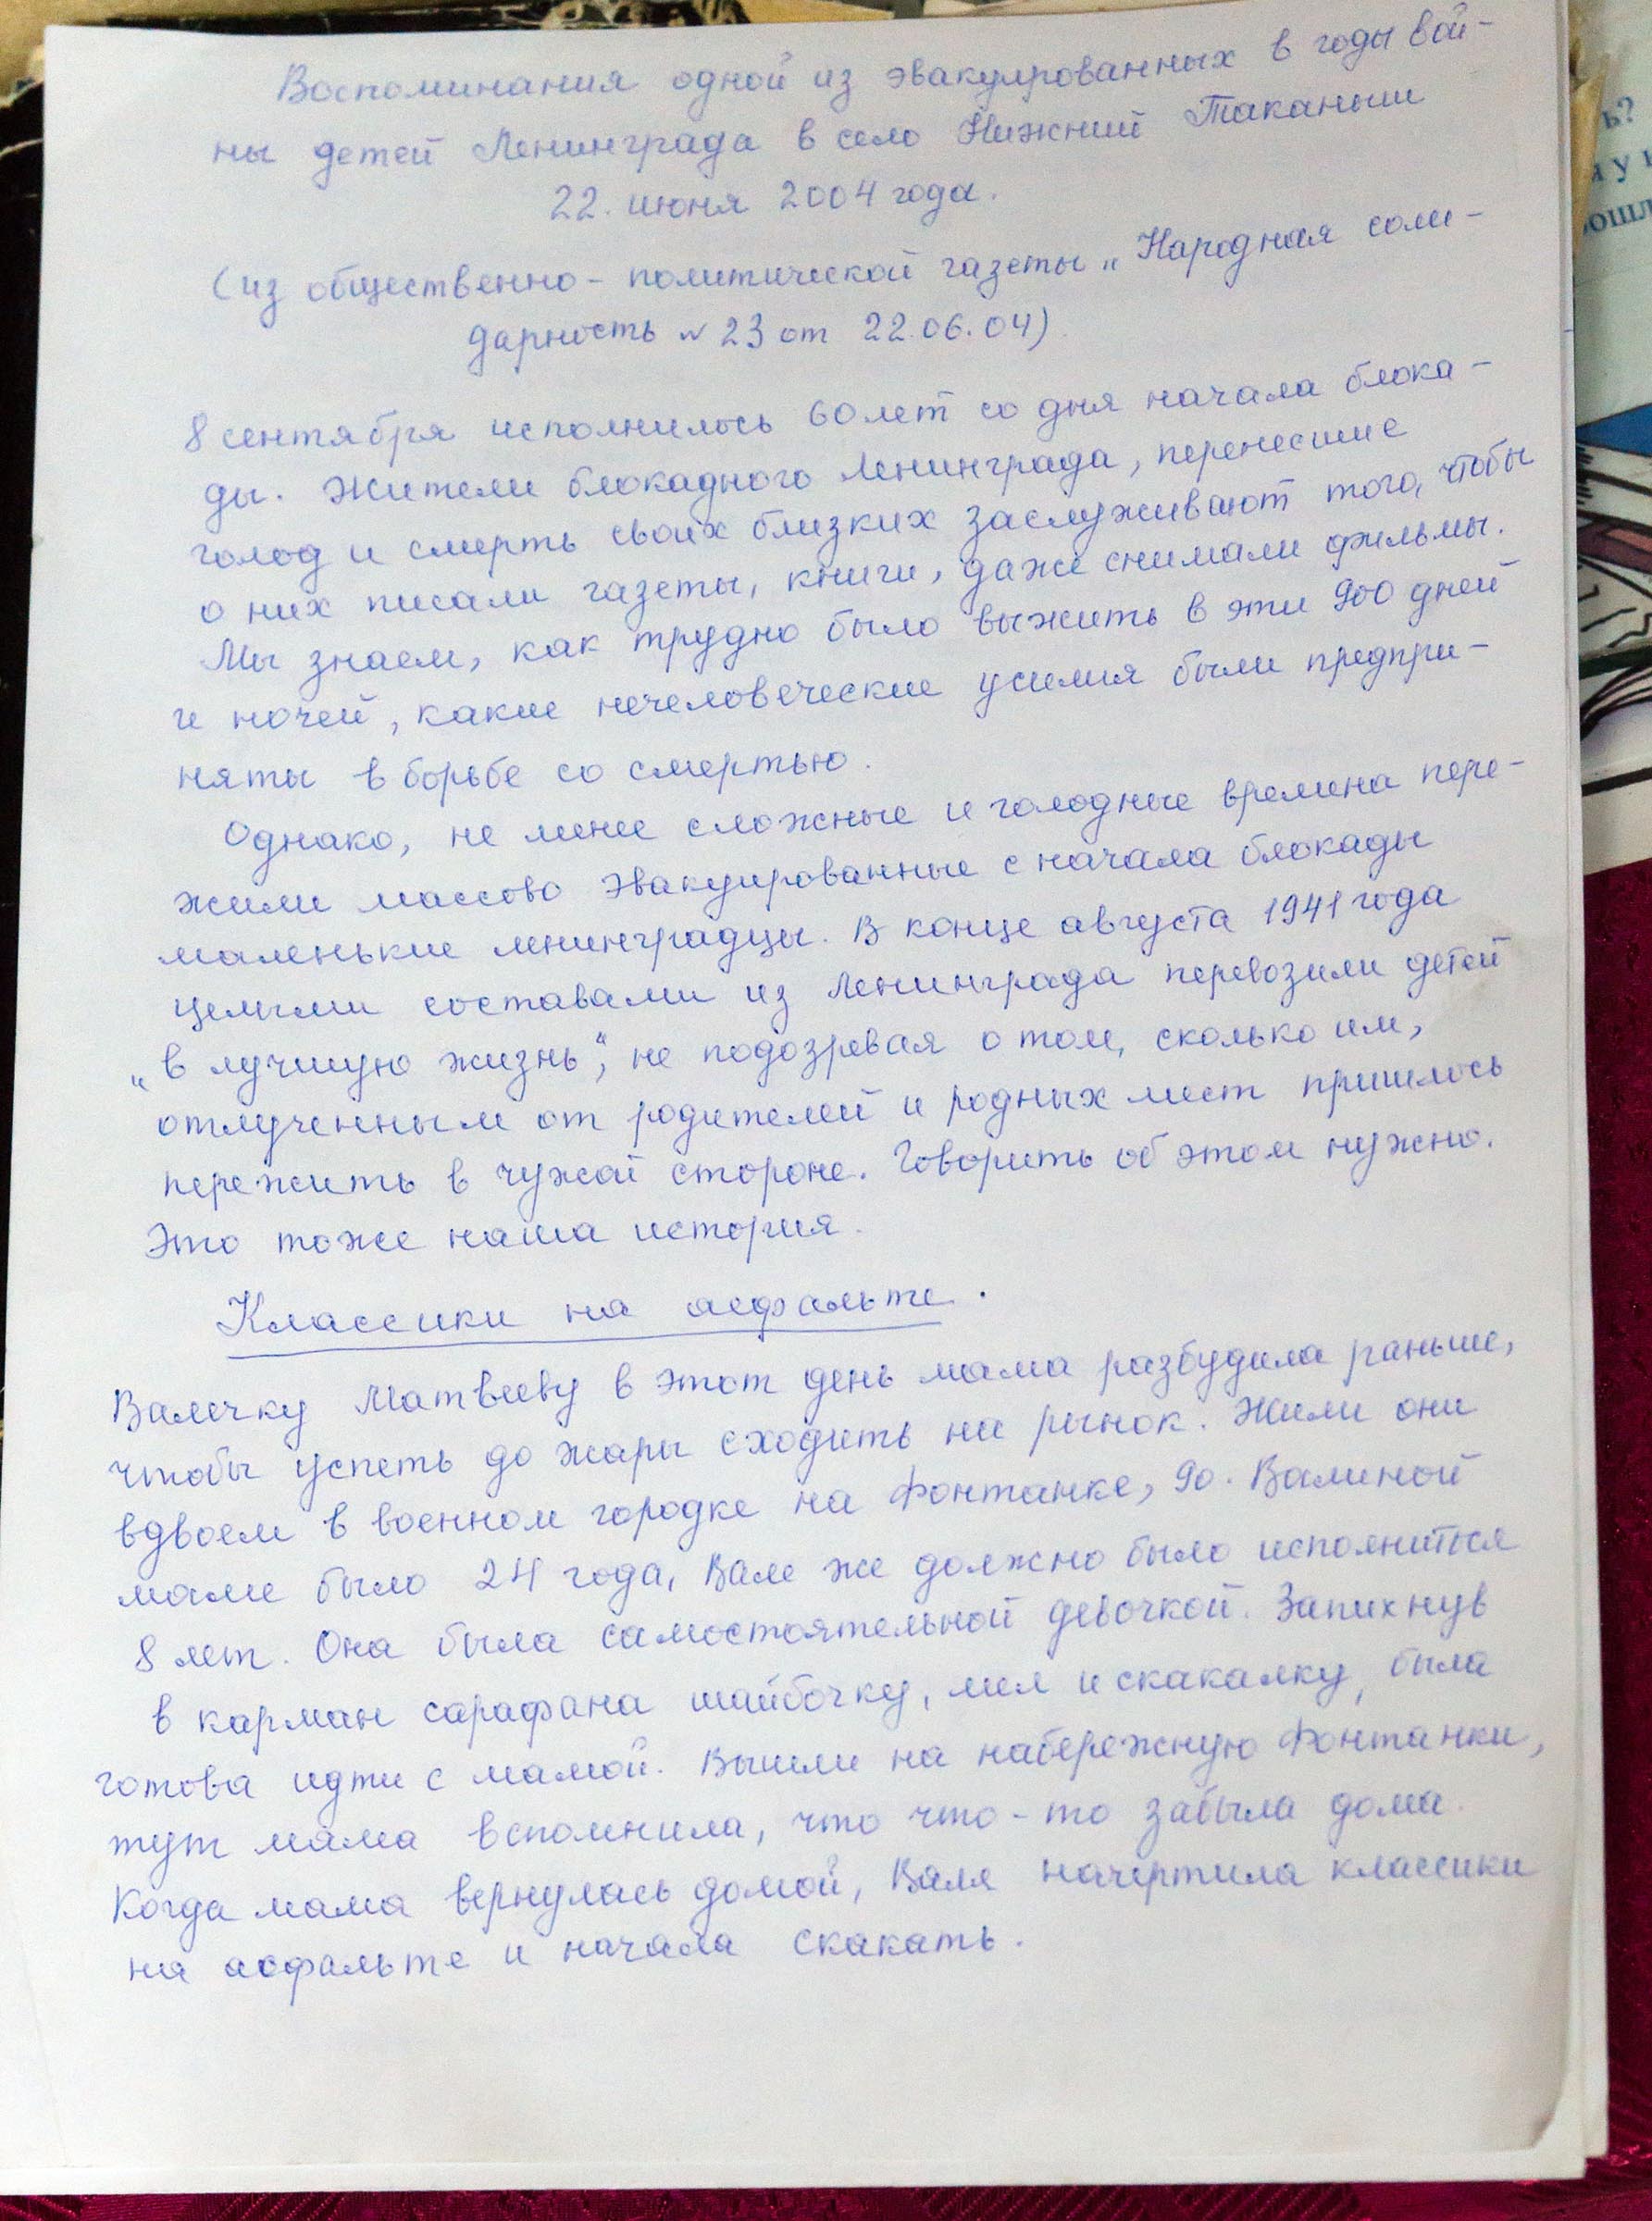 Воспоминания одной из эвакуированных в годы вой-
ны детей Ленинграда в село Нижний Таканыш
22. июня 2004 года.
(из общественно-политической газеты „Народная соли-
дарность № 23 от 22.06.04)
8 сентября исполнилось 60 лет со дня начала блока-
ды. Жители блокадного Ленинграда, перенесшие
голод и смерть своих близких заслуживают того, чтобы
о них писали газеты, книги, даже снимали фильмы.
Мы знаем, как трудно было выжить в эти 900 дней
и ночей, какие нечеловеческие усилия были предпри-
няты в борьбе со смертью.
Однако, не менее сложные и голодные времена пере-
жили массово эвакуированные с начала блокады
маленькие ленинградцы. В конце августа 1941 года
целыми составами из Ленинграда перевозили детей
„в лучшую жизнь“, не подозревая о том, сколько им,
отлученным от родителей и родных мест пришлось
пережить в чужой стороне. Говорить об этом нужно.
Это тоже наша история.
Классики на асфальте.
Валечку Матвееву в этот день мама разбудила раньше,
чтобы успеть до жары сходить на рынок. Жили они
вдвоем в военном городке на Фонтанке, 90. Валиной
маме было 24 года, Вале же должно было исполниться
8 лет. Она была самостоятельной девочкой. Запихнув
в карман сарафана шайбочку, мел и скакалку, была
готова идти с мамой. Вышли на набережную Фонтанки,
тут мама вспомнила, что что-то забыла дома.
Когда мама вернулась домой, Валя начертила классики
на асфальте и начала скакать.
ь?
я у н
ошл